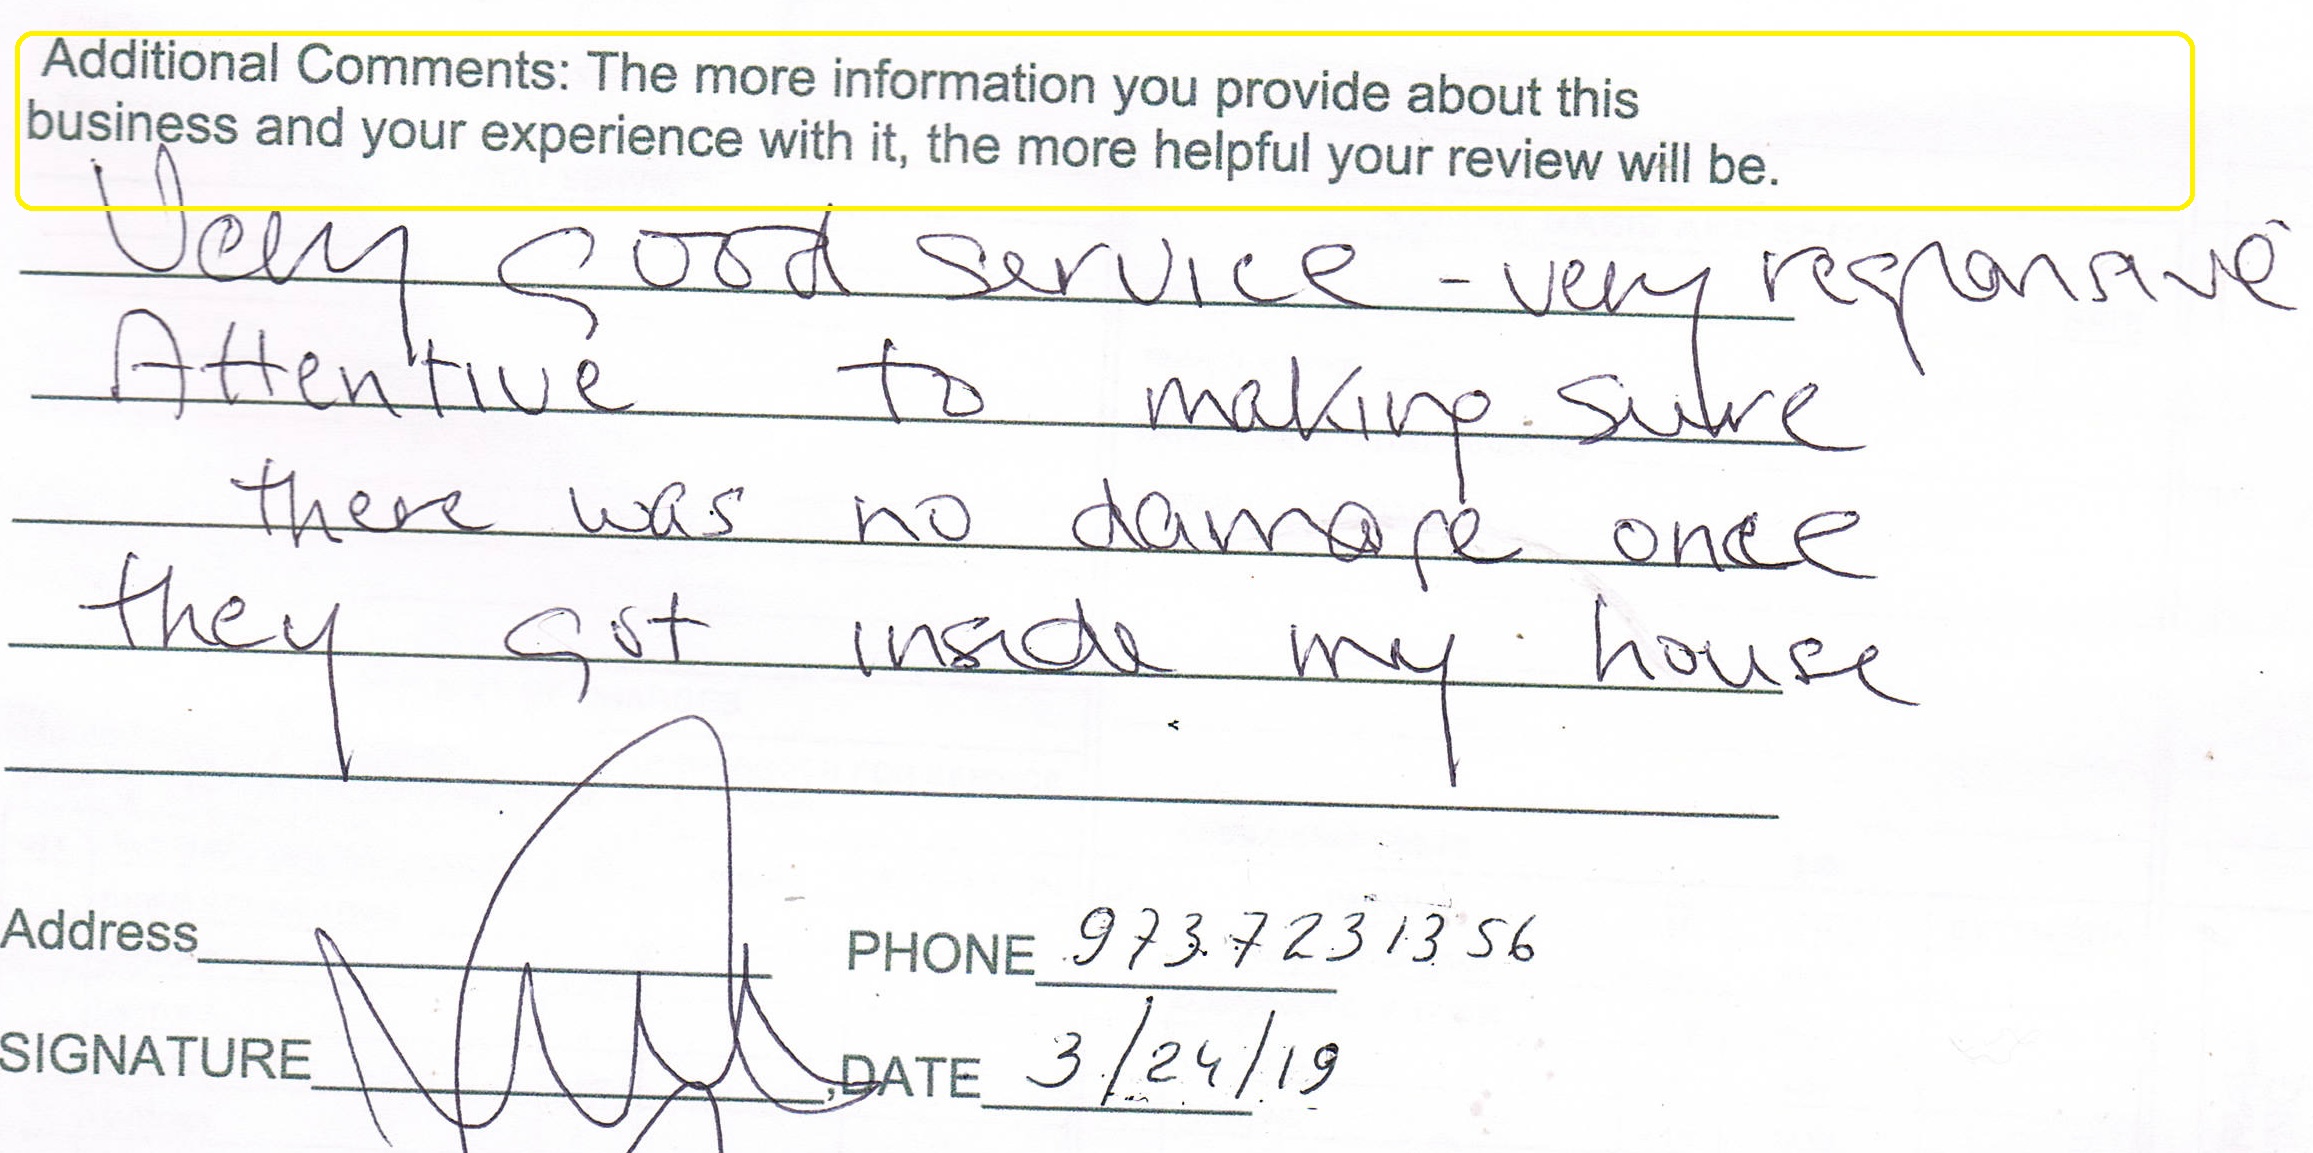 Additional Comments: The more information you provide about this
business and your experience with it, the more helpful your review will be.
Very good service - very responsive
Attentive to making sure
there was no damage once
they got inside my house
Address PHONE 973.7231356
SIGNATURE ,DATE 3/24/19